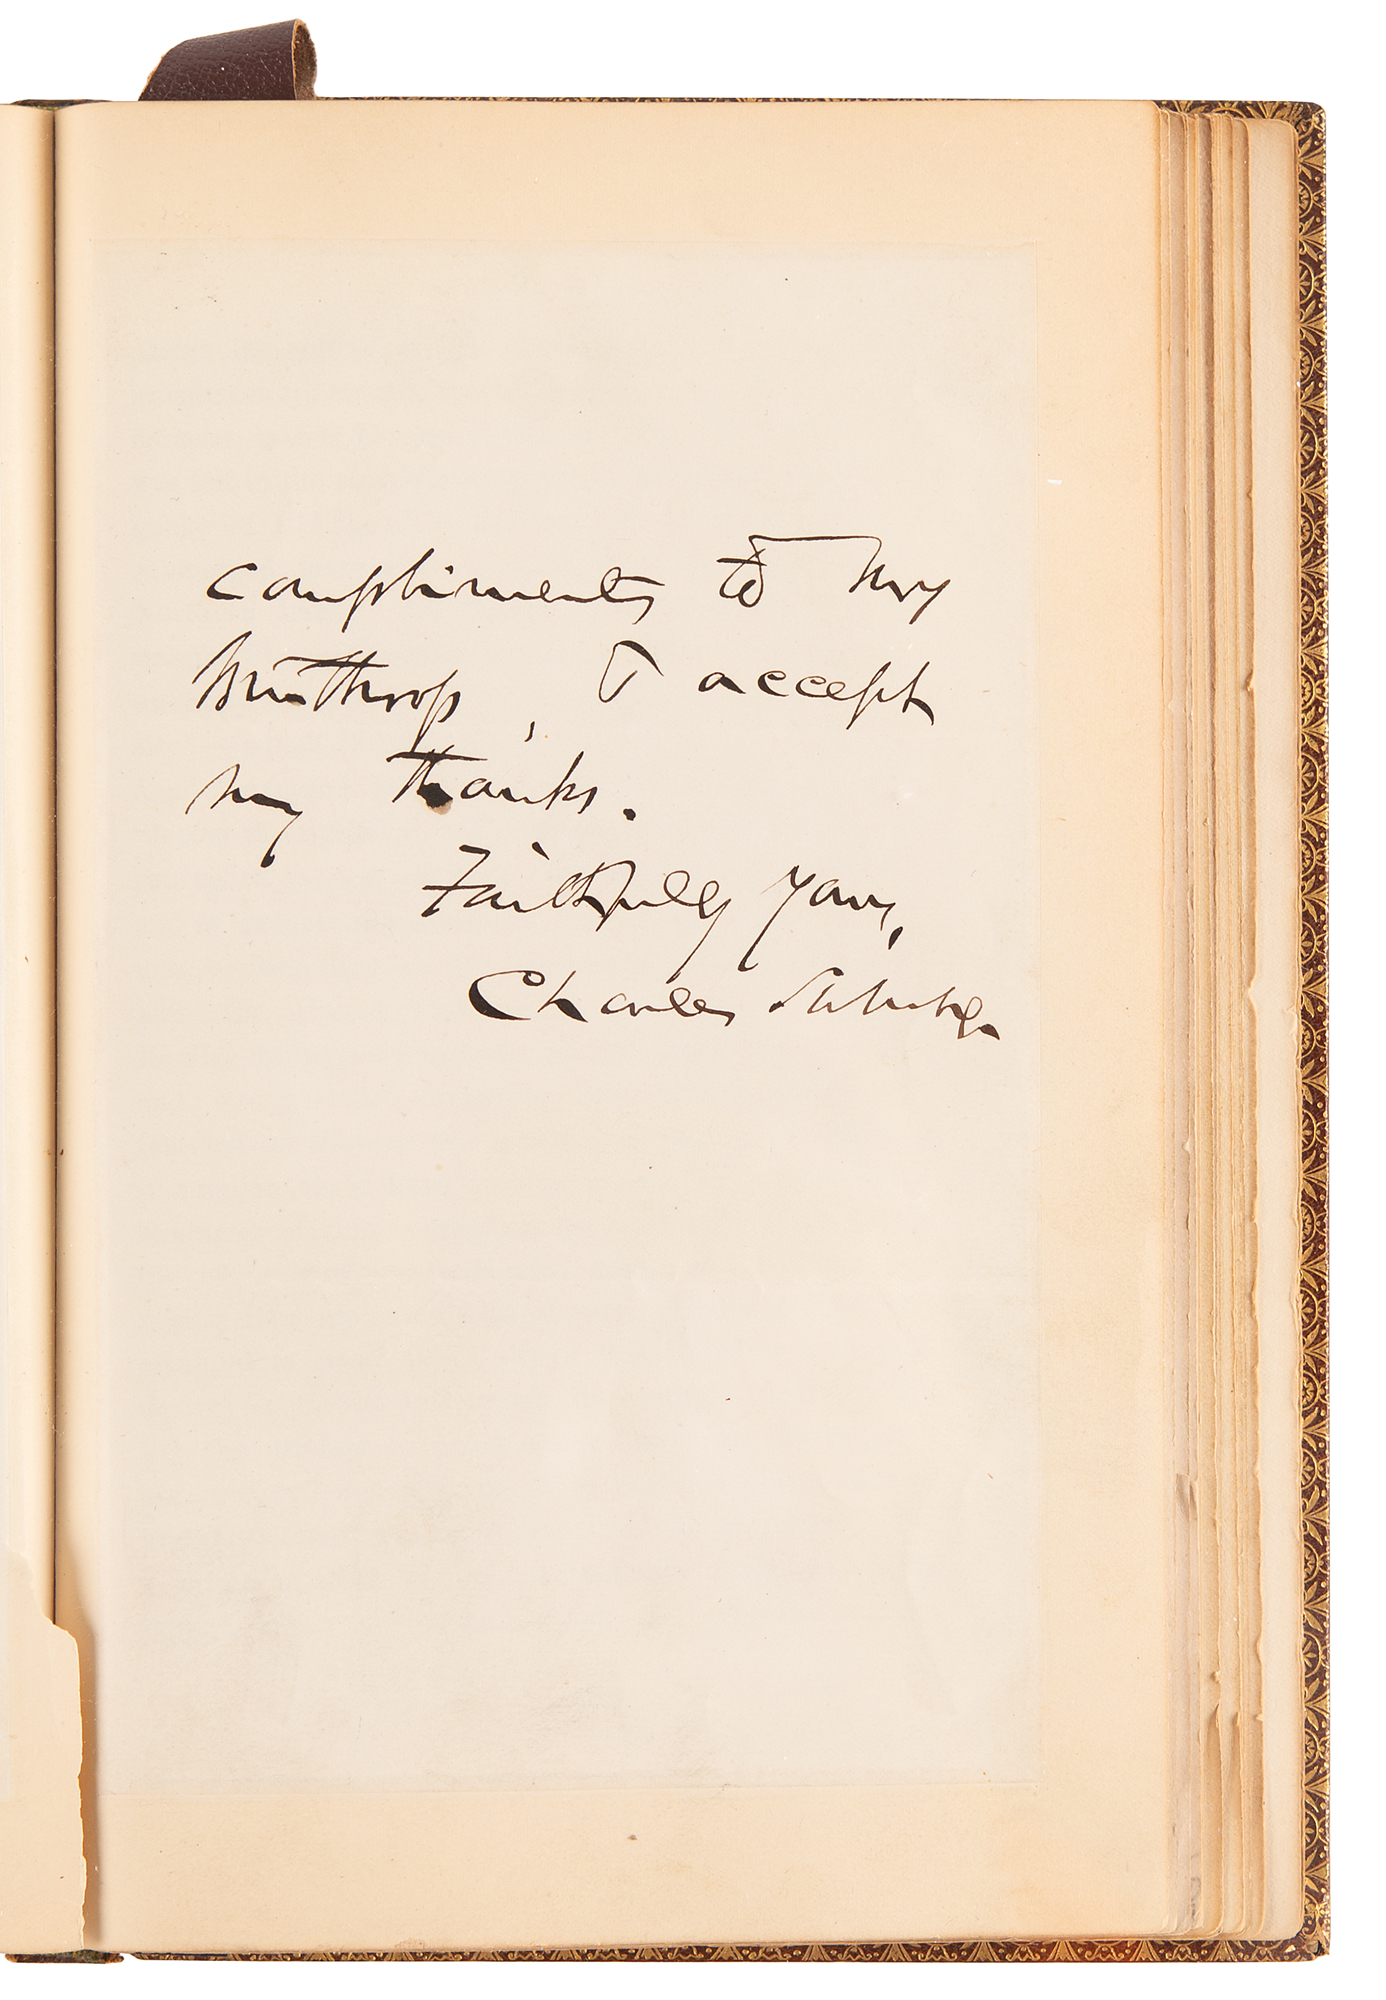 compliments to Mrs
Winthrop, & accept
my thanks.
Faithfully Yours,
Charles